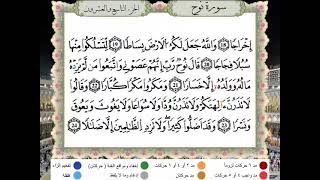 سورة نوح
الجزء التاسع والعشرون
إِخْرَاجًا ﴿١٨﴾ وَاللَّهُ جَعَلَ لَكُمُ الْأَرْضَ بِسَاطًا ﴿١٩﴾ لِتَسْلُكُوا مِنْهَا
سُبُلًا فِجَاجًا ﴿٢٠﴾ قَالَ نُوحٌ رَبِّ إِنَّهُمْ عَصَوْنِي وَاتَّبَعُوا مَنْ لَمْ يَزِدْهُ
مَالُهُ وَوَلَدُهُ إِلَّا خَسَارًا ﴿٢١﴾ وَمَكَرُوا مَكْرًا كُبَّارًا ﴿٢٢﴾ وَقَالُوا
لَا تَذَرُنَّ آلِهَتَكُمْ وَلَا تَذَرُنَّ وَدًّا وَلَا سُوَاعًا وَلَا يَغُوثَ وَيَعُوقَ
وَنَسْرًا ﴿٢٣﴾ وَقَدْ أَضَلُّوا كَثِيرًا وَلَا تَزِدِ الظَّالِمِينَ إِلَّا ضَلَالًا ﴿٢٤﴾
مد ٦ حركات لزوماً مد ٢ أو ٤ أو ٦ جوازاً إخفاء ومواقع الغنة (حركتان) تفخيم الراء
مد واجب ٤ أو ٥ حركات مد حركتان إدغام وما لا يلفظ قلقلة